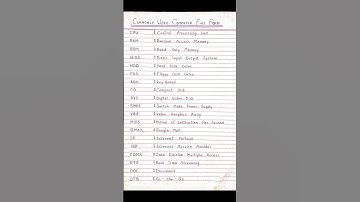 Commonly Used Computer Full Form
CPU : Central Processing Unit
RAM : Random Access Memory
ROM : Read Only Memory
BIOS : Basic Input Output System
HDD : Hard Disk Drive
FDD : Floppy Disk Drive
KBD : Key Board
CD : Compact Disk
DVD : Digital Video Disk
SMPS : Switch Mode Power Supply
VGA : Video Graphics Array
MIPS : Million of Instruction Per Second
GMAIL : Google Mail
IP : Internet Protocol
ISP : Internet Service Provider
CDMA : Code Division Multiple Access
RTS : Real Time Streaming
DOC : Document
OTG : On - The - Go